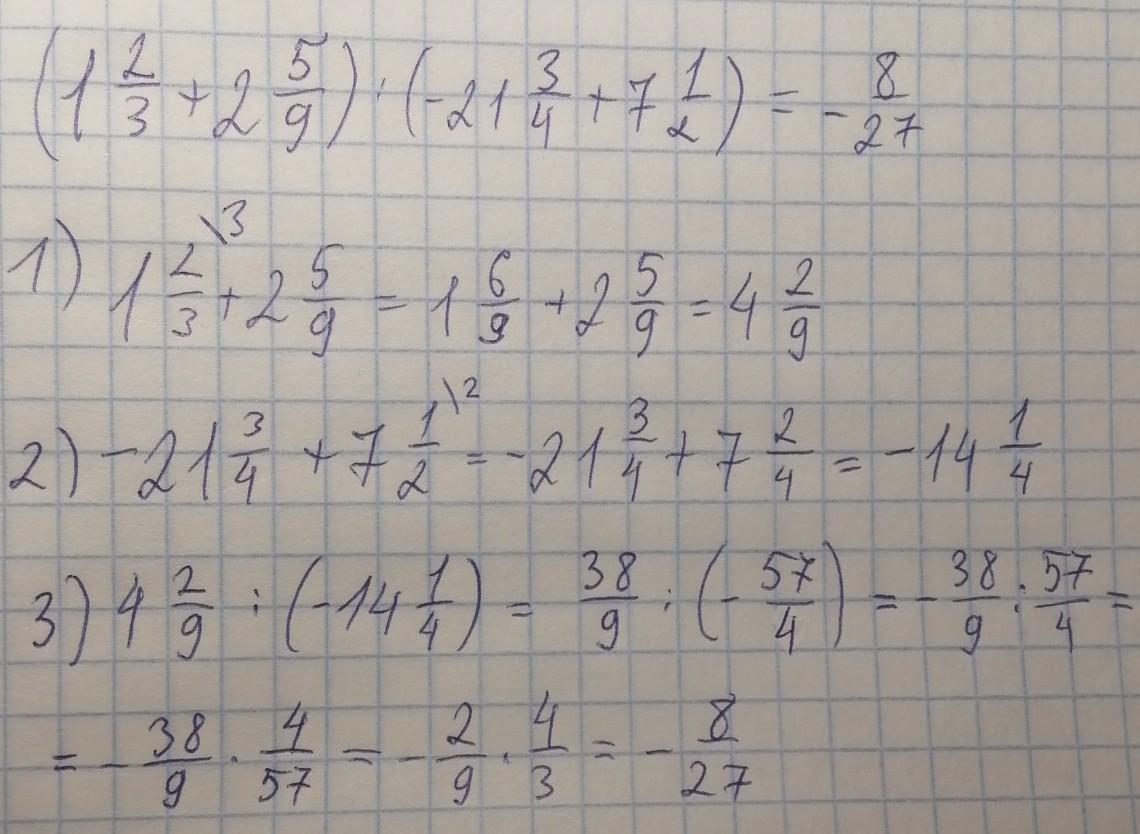 (1 2/3 + 2 5/9) : (-21 3/4 + 7 1/2) = - 8/27
1) 1 2/3 \3 + 2 5/9 = 1 6/9 + 2 5/9 = 4 2/9
2) -21 3/4 + 7 1/2 \2 = -21 3/4 + 7 2/4 = -14 1/4
3) 4 2/9 : (-14 1/4) = 38/9 : (- 57/4) = - 38/9 : 57/4 =
= - 38/9 · 4/57 = - 2/9 · 4/3 = - 8/27